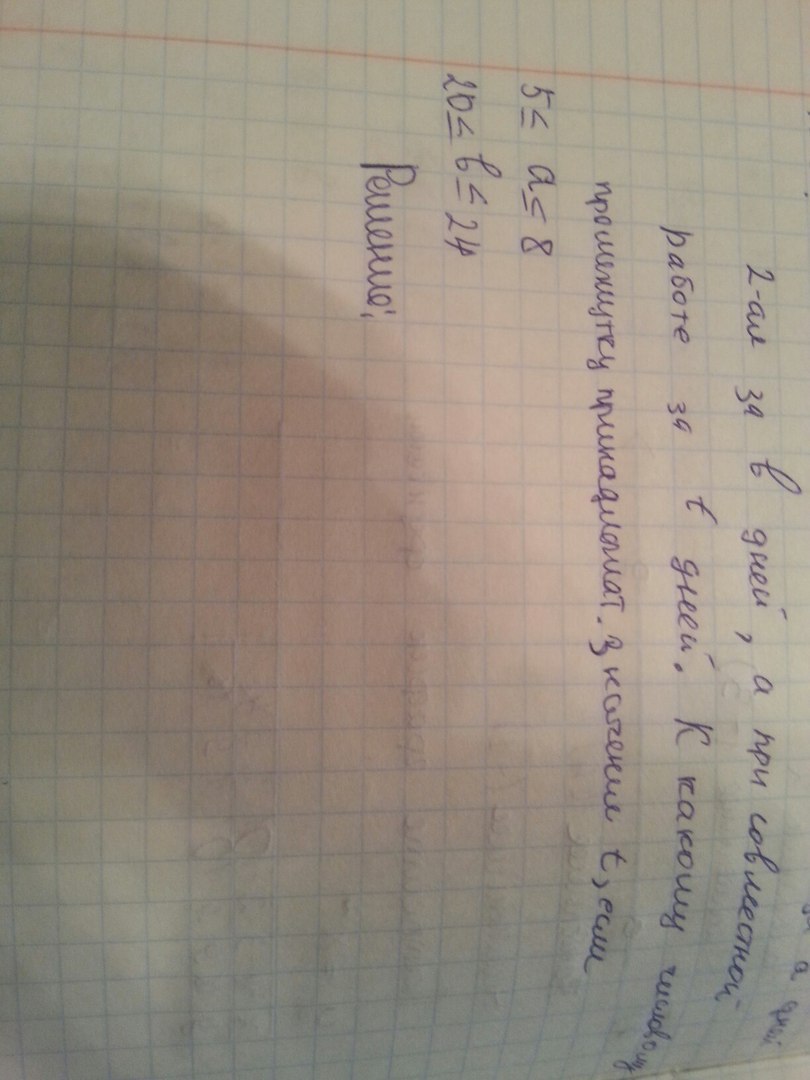 а дней
2-ая за в дней, а при совместной
работе за t дней. К какому числовому
промежутку принадлежат. Значения t, если
5 ≤ а ≤ 8
20 ≤ в ≤ 24
Решение;